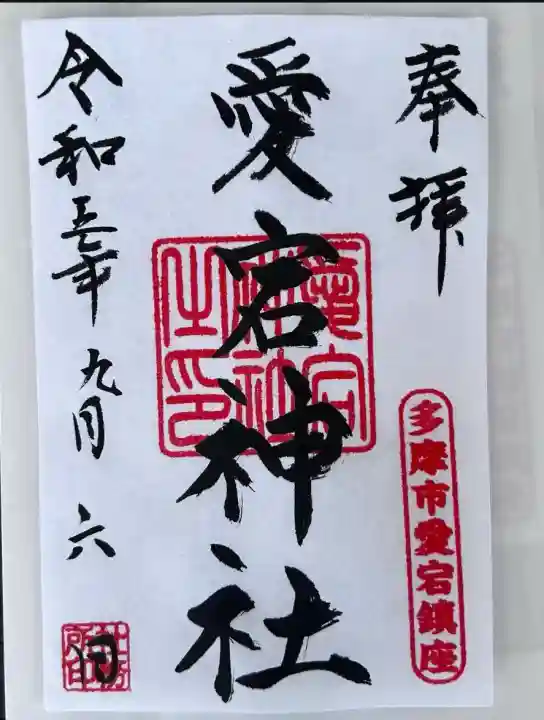 奉拝
多摩市愛宕鎮座
愛宕神社
愛宕神社之印
令和五年九月六日
社務所印